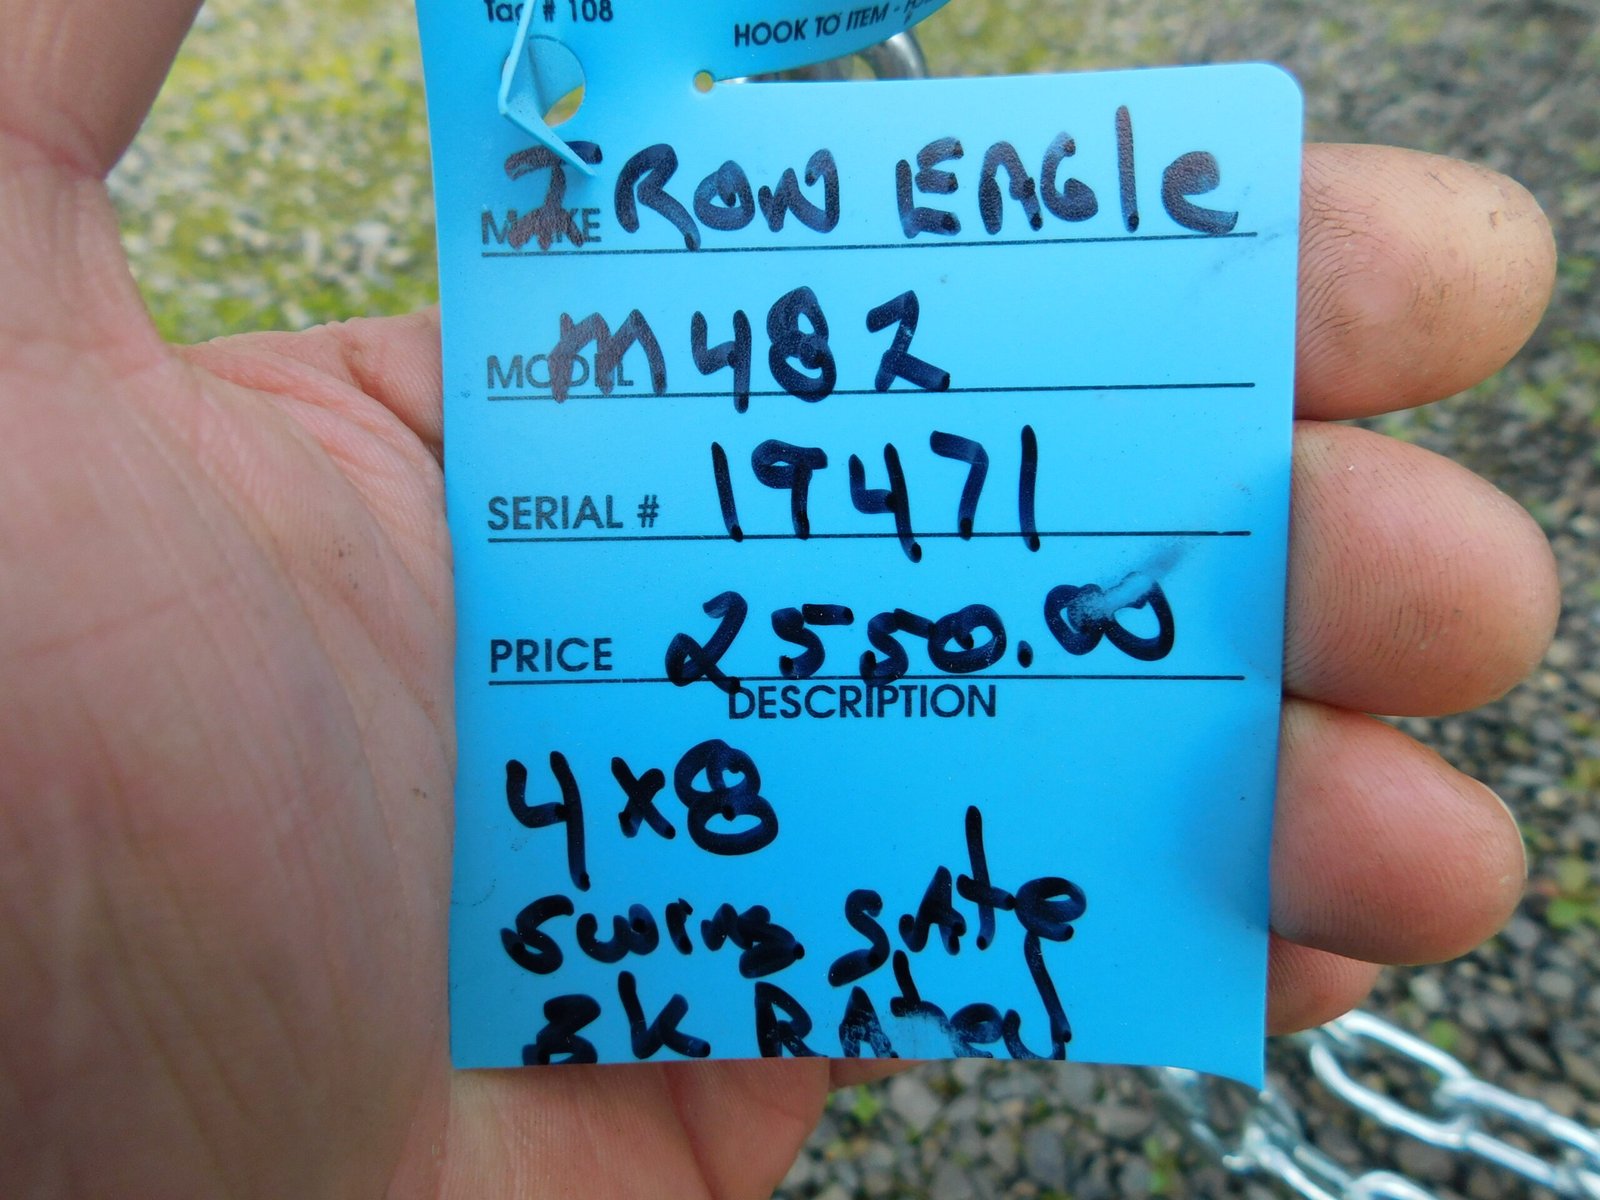 Tag # 108
HOOK TO ITEM -
MAKE IRON EAGle
MODEL M482
SERIAL # 19471
PRICE 2550.00
DESCRIPTION
4x8
Swing gAte
3K RAted